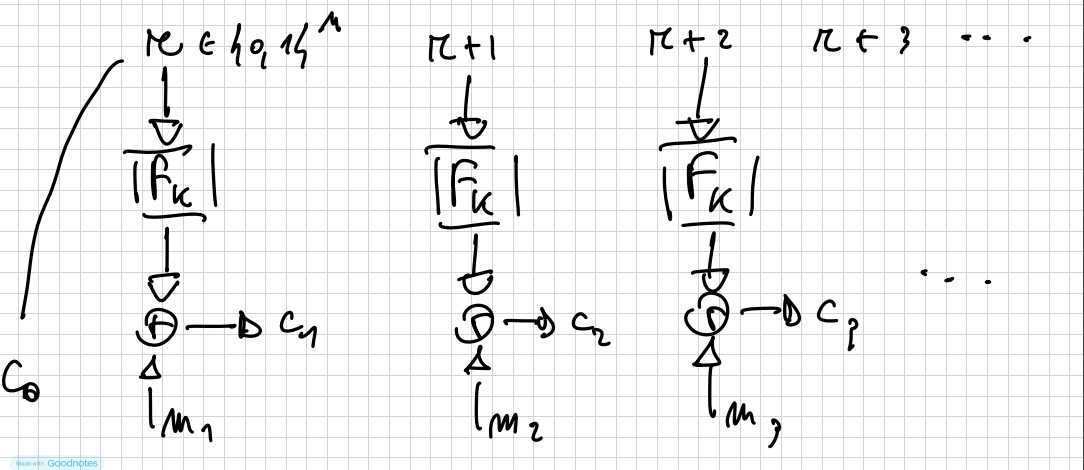 r ∈ {0,1}ⁿ r+1 r+2 r+3 ...
F_K F_K F_K
...
⊕ → C₁ ⊕ → C₂ ⊕ → C₃
C₀
m₁ m₂ m₃
Made with Goodnotes